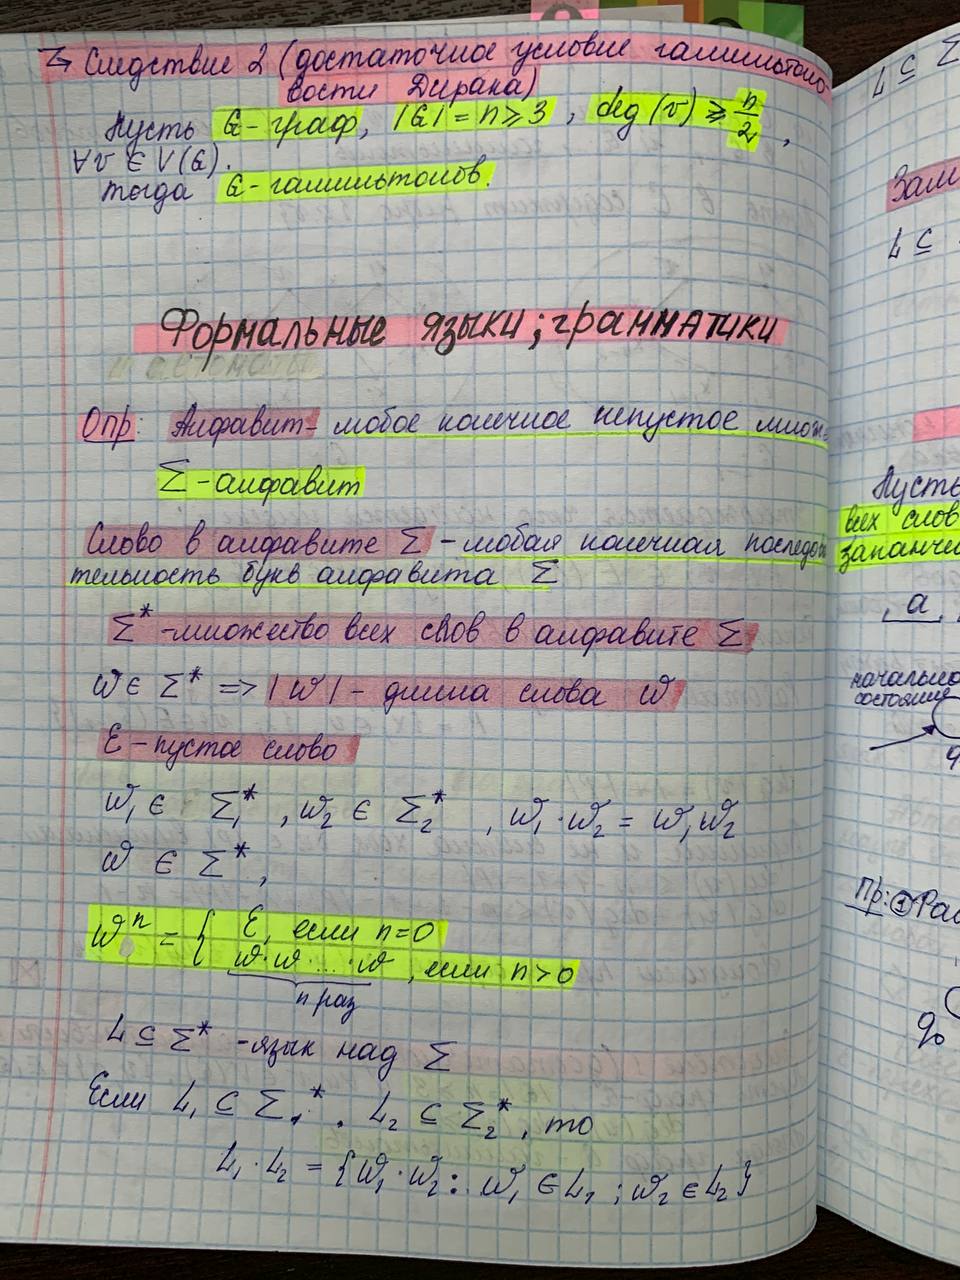 ↳ Следствие 2 (достаточное условие гамильтоно-
вости Дирака)
Пусть G - граф, |G| = n ≥ 3, deg(v) ≥ n/2,
∀v ∈ V(G).
тогда G - гамильтонов.
Формальные языки; грамматики
и автоматы
Опр: Алфавит - любое конечное непустое множ-
Σ - алфавит
Слово в алфавите Σ - любая конечная последова
тельность букв алфавита Σ
Σ* - множество всех слов в алфавите Σ
w ∈ Σ* => |w| - длина слова w
ε - пустое слово
w₁ ∈ Σ₁*, w₂ ∈ Σ₂*, w₁ · w₂ = w₁w₂
w ∈ Σ*,
wⁿ = { ε, если n=0
w·w·...·w, если n>0
n раз
L ⊆ Σ* - язык над Σ
Если L₁ ⊆ Σ₁*, L₂ ⊆ Σ₂*, то
L₁ · L₂ = {w₁ · w₂ : w₁ ∈ L₁ ; w₂ ∈ L₂}
L ⊆ Σ
Зам
L ⊆
Пусть
всех слов
заканчи
a
начально
состояние
q
Пр: ① Рас
q₀